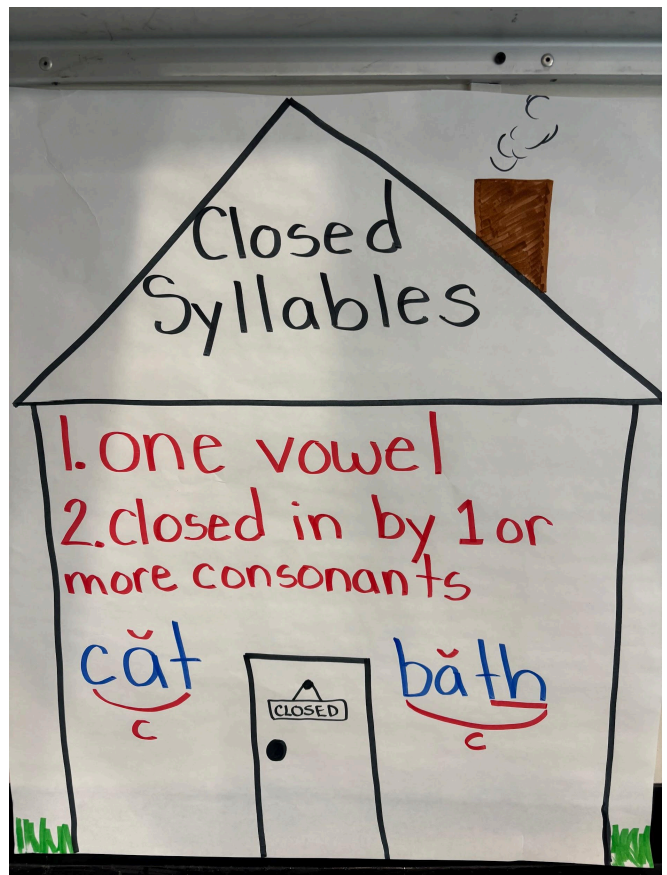 Closed
Syllables
1. one vowel
2. closed in by 1 or
more consonants
căt
c
CLOSED
băth
c